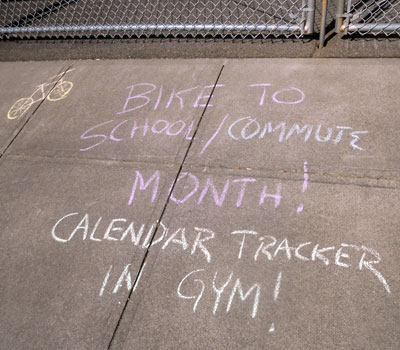 BIKE TO
SCHOOL/COMMUTE
MONTH!
CALENDAR TRACKER
IN GYM!